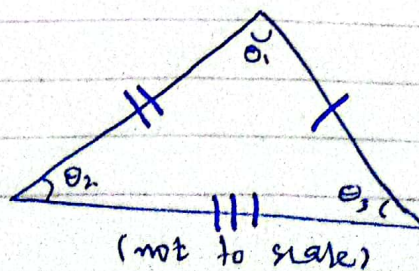 θ₁
θ₂
θ₃
(not to scale)